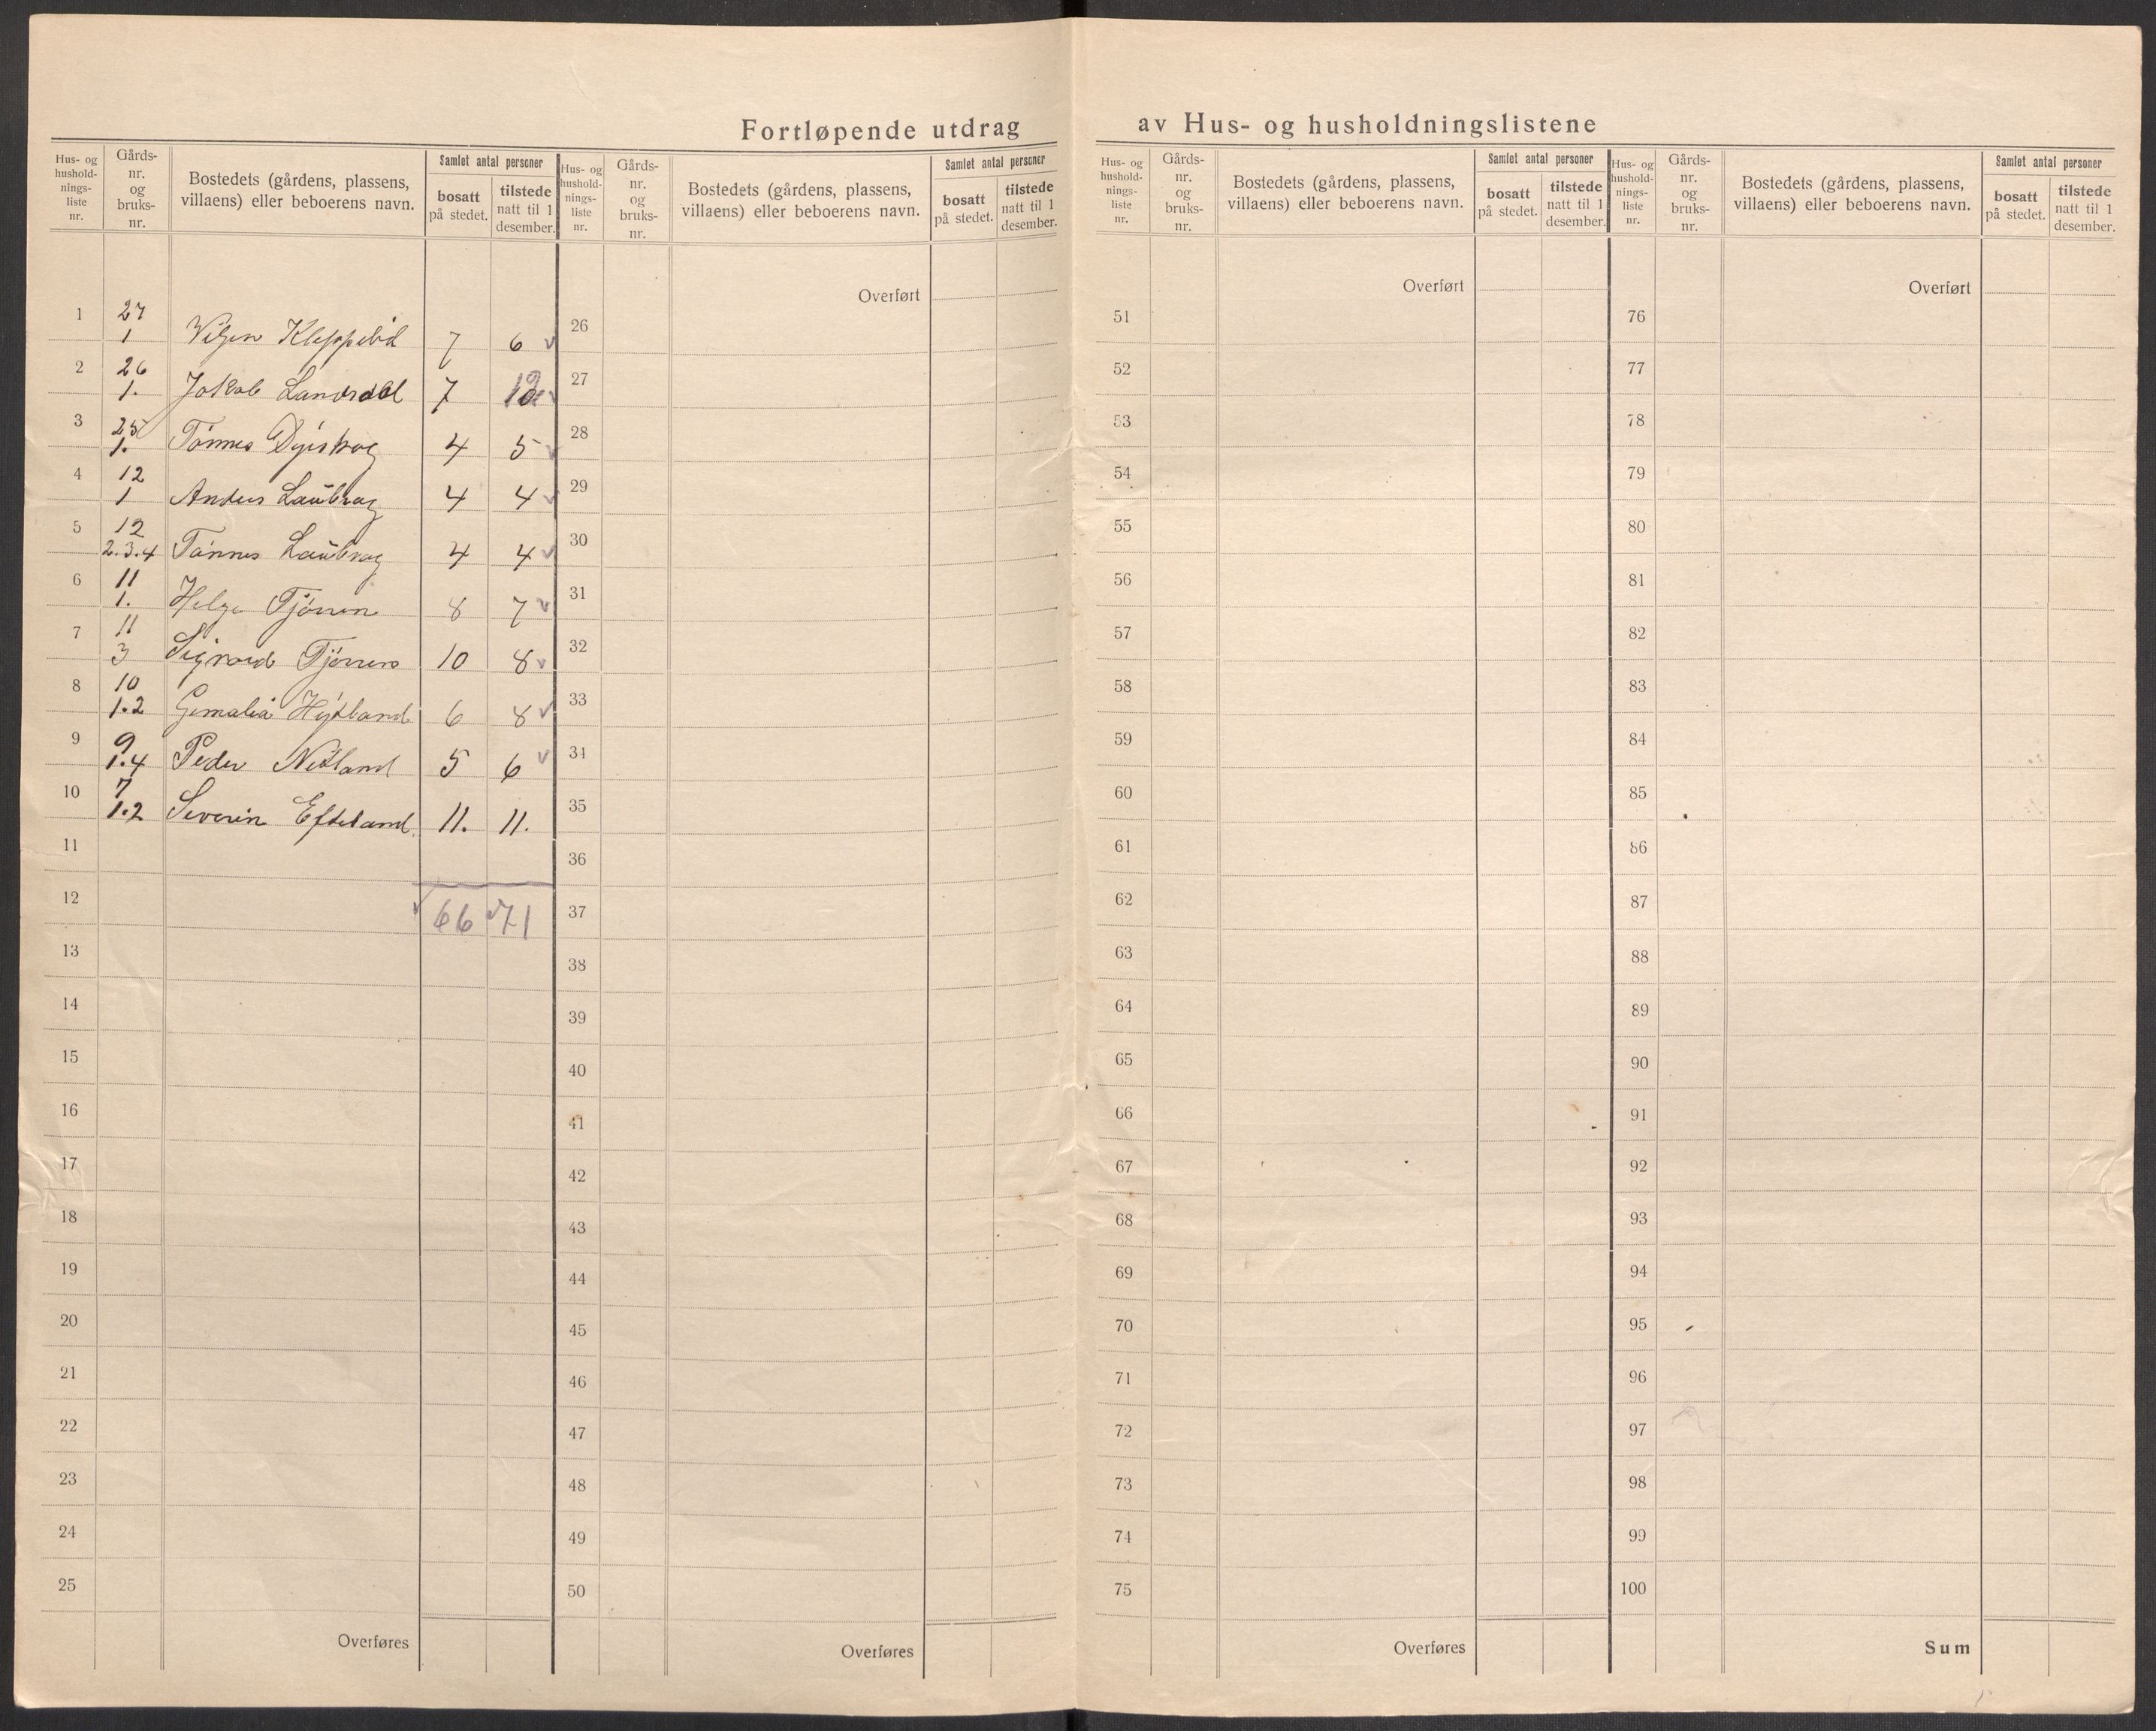 Fortløpende utdrag av Hus- og husholdningslistene
Hus- og hushold-nings-liste nr. | Gårds-nr. og bruks-nr. | Bostedets (gårdens, plassens, villaens) eller beboerens navn. | Samlet antal personer | bosatt på stedet. | tilstede natt til 1 desember.
Hus- og hushold-nings-liste nr. | Gårds-nr. og bruks-nr. | Bostedets (gårdens, plassens, villaens) eller beboerens navn. | Samlet antal personer | bosatt på stedet. | tilstede natt til 1 desember.
Hus- og hushold-nings-liste nr. | Gårds-nr. og bruks-nr. | Bostedets (gårdens, plassens, villaens) eller beboerens navn. | Samlet antal personer | bosatt på stedet. | tilstede natt til 1 desember.
Hus- og hushold-nings-liste nr. | Gårds-nr. og bruks-nr. | Bostedets (gårdens, plassens, villaens) eller beboerens navn. | Samlet antal personer | bosatt på stedet. | tilstede natt til 1 desember.
1 27
1 Kleppelid 7 6 ✓
2 26
1. Jakob Landdal 7
3 25
1. Tønnes 4 5 ✓
4 12
1 Anders Laubrag 4 4 ✓
5 12
2.3.4 Tønnes Laubrag 4 4 ✓
6 11
1. Helge Tjørren 8 7 ✓
7 11
3 Sigvard Tjørren 10 8 ✓
8 10
1.2 6 8 ✓
9 9
1.4 Peder Netland 5 6 ✓
10 7
1.2 Severin Efteland 11. 11.
11
12 ✓66 ✓71
13
14
15
16
17
18
19
20
21
22
23
24
25
Overføres
Overført
26
27
28
29
30
31
32
33
34
35
36
37
38
39
40
41
42
43
44
45
46
47
48
49
50
Overføres
Overført
51
52
53
54
55
56
57
58
59
60
61
62
63
64
65
66
67
68
69
70
71
72
73
74
75
Overføres
Overført
76
77
78
79
80
81
82
83
84
85
86
87
88
89
90
91
92
93
94
95
96
97
98
99
100
Sum